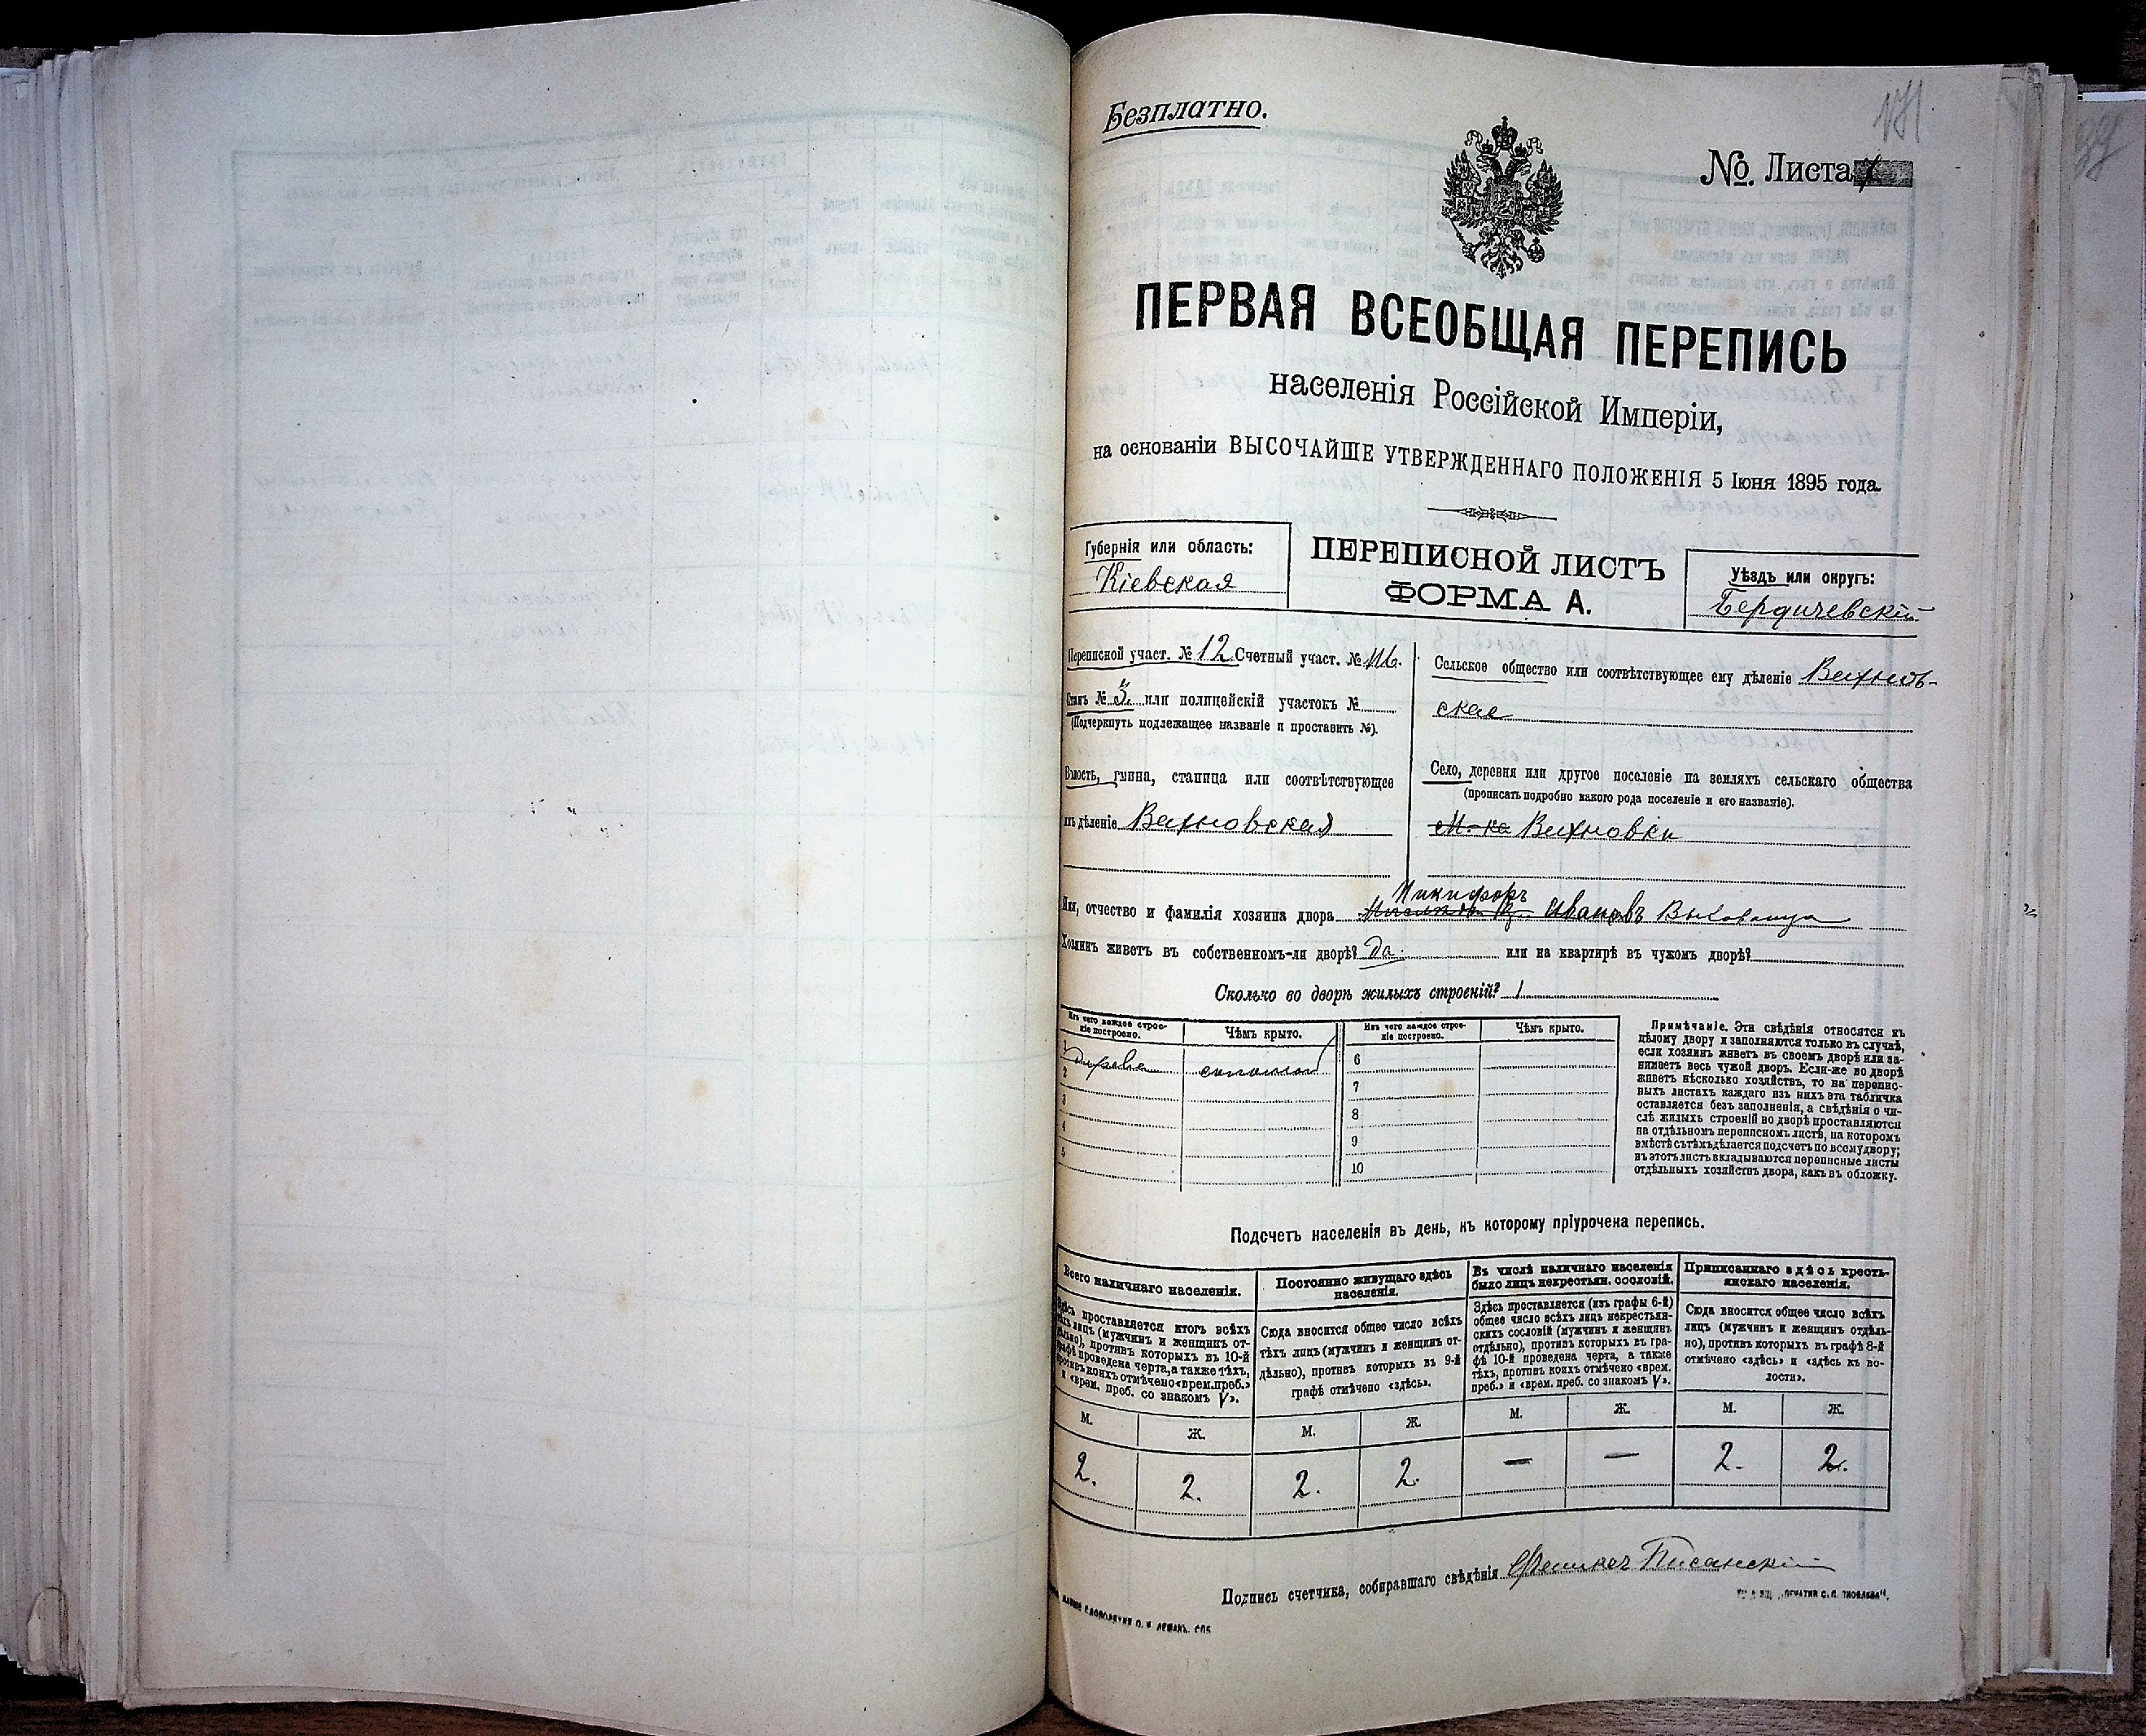 Безплатно.
171
№ Листа
ПЕРВАЯ ВСЕОБЩАЯ ПЕРЕПИСЬ
населенія Россійской Имперіи,
на основаніи ВЫСОЧАЙШЕ УТВЕРЖДЕННАГО ПОЛОЖЕНІЯ 5 Іюня 1895 года.
Губернія или область:
Кіевская
ПЕРЕПИСНОЙ ЛИСТЪ
ФОРМА А.
Уѣздъ или округъ:
Бердичевскій
Переписной участ. № 12 Счетный участ. №
Станъ № 3. или полицейскій участокъ №
(Подчеркнуть подлежащее названіе и проставить №).
Волость, гмина, станица или соотвѣтствующее
имъ дѣленіе Вахновская
Сельское общество или соотвѣтствующее ему дѣленіе Вахнов-
ское
Село, деревня или другое поселеніе на земляхъ сельскаго общества
(прописать подробно какого рода поселеніе и его названіе).
М-ко Вахновка
Никифоръ
Имя, отчество и фамилія хозяина двора Ивановъ
Хозяинъ живетъ въ собственномъ-ли дворѣ? да. или на квартирѣ въ чужомъ дворѣ?
Сколько во дворѣ жилыхъ строеній? 1
Изъ чего каждое строе-
ніе построено.
Чѣмъ крыто.
Изъ чего каждое строе-
ніе построено.
Чѣмъ крыто.
1 дерева соломой
2
3
4
5
6
7
8
9
10
Примѣчаніе. Эти свѣдѣнія относятся къ
цѣлому двору и заполняются только въ случаѣ,
если хозяинъ живетъ въ своемъ дворѣ или за-
нимаетъ весь чужой дворъ. Если-же во дворѣ
живетъ нѣсколько хозяйствъ, то на перепис-
ныхъ листахъ каждаго изъ нихъ эта табличка
оставляется безъ заполненія, а свѣдѣнія о чи-
слѣ жилыхъ строеній во дворѣ проставляются
на отдѣльномъ переписномъ листѣ, на которомъ
вмѣстѣ съ тѣмъ дѣлается подсчетъ по всему двору;
въ этотъ листъ вкладываются переписные листы
отдѣльныхъ хозяйствъ двора, какъ въ обложку.
Подсчетъ населенія въ день, къ которому пріурочена перепись.
Всего наличнаго населенія.
Здѣсь проставляется итогъ всѣхъ
тѣхъ лицъ (мужчинъ и женщинъ от-
дѣльно), противъ которыхъ въ 10-й
графѣ проведена черта, а также тѣхъ,
противъ коихъ отмѣчено «врем. преб.»
и «врем. преб. со знакомъ V».
М.
Ж.
2.
2.
Постоянно живущаго здѣсь
населенія.
Сюда вносится общее число всѣхъ
тѣхъ лицъ (мужчинъ и женщинъ от-
дѣльно), противъ которыхъ въ 9-й
графѣ отмѣчено «здѣсь».
М.
Ж.
2.
2.
Въ числѣ наличнаго населенія
было лицъ некрестьян. сословій.
Здѣсь проставляется (изъ графы 6-й)
общее число всѣхъ лицъ некрестьян-
скихъ сословій (мужчинъ и женщинъ
отдѣльно), противъ которыхъ въ гра-
фѣ 10-й проведена черта, а также
тѣхъ, противъ коихъ отмѣчено «врем.
преб.» и «врем. преб. со знакомъ V».
М.
Ж.
—
—
Приписаннаго здѣсь кресть-
янскаго населенія.
Сюда вносится общее число всѣхъ
лицъ (мужчинъ и женщинъ отдѣль-
но), противъ которыхъ въ графѣ 8-й
отмѣчено «здѣсь» и «здѣсь къ во-
лости».
М.
Ж.
2.
2.
Подпись счетчика, собиравшаго свѣдѣнія Феликсъ Писанскій